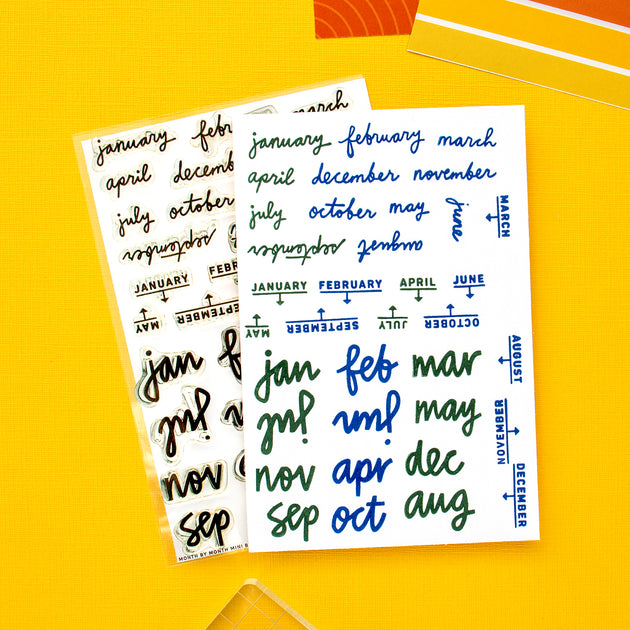 january feb march
april decemb
july october
september
JANUARY FEBR
MAY SEPTEMBER
jan
jul
nov
sep
MONTH BY MONTH MINI
january february march
april december november
july october may june
september august
MARCH
JANUARY FEBRUARY APRIL JUNE
MAY SEPTEMBER JULY OCTOBER
jan feb mar
AUGUST
jul jun may
NOVEMBER
nov apr dec
DECEMBER
sep oct aug